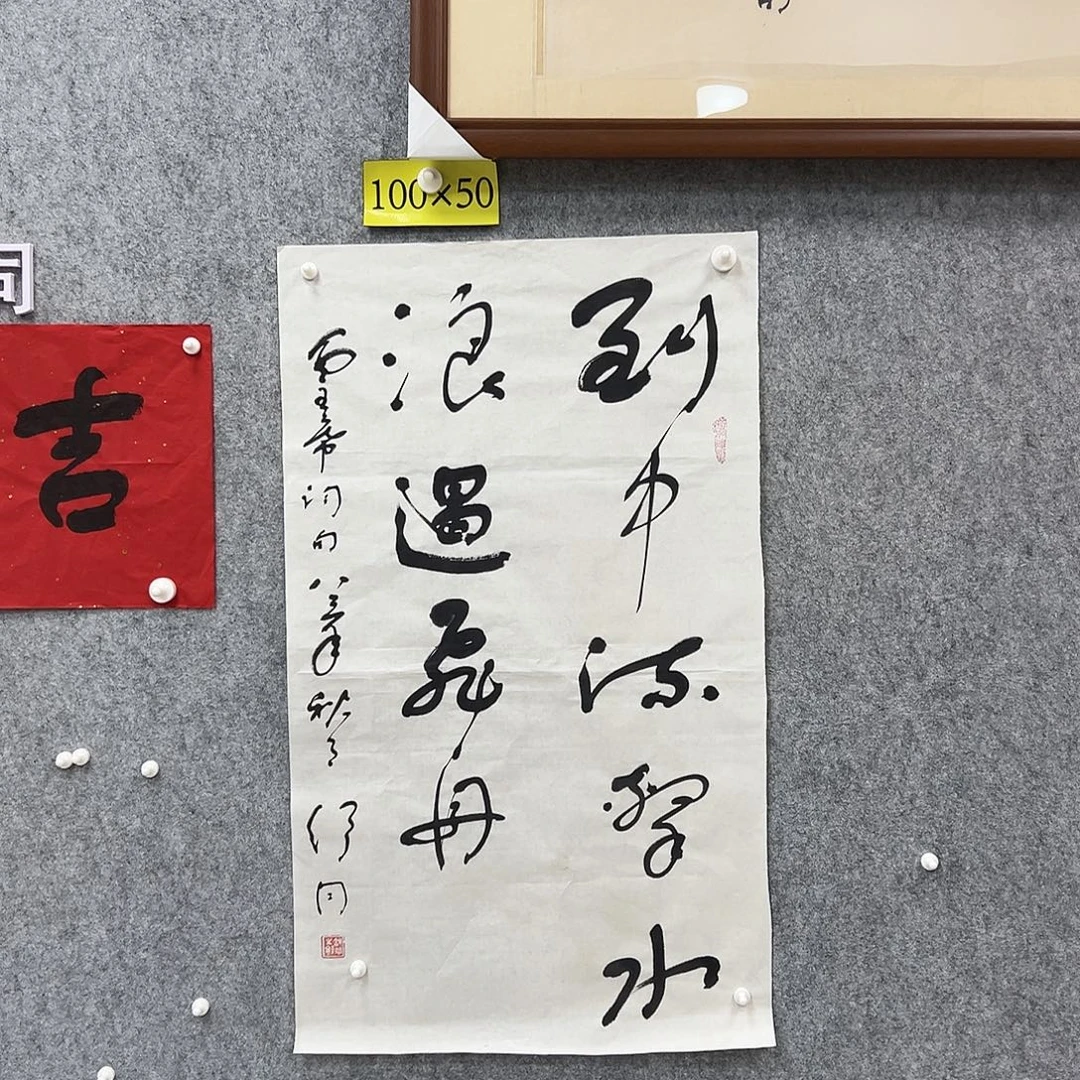 100×50
到中流擊水
浪遏飛舟
毛主席詞句八三年秋月舒同
吉